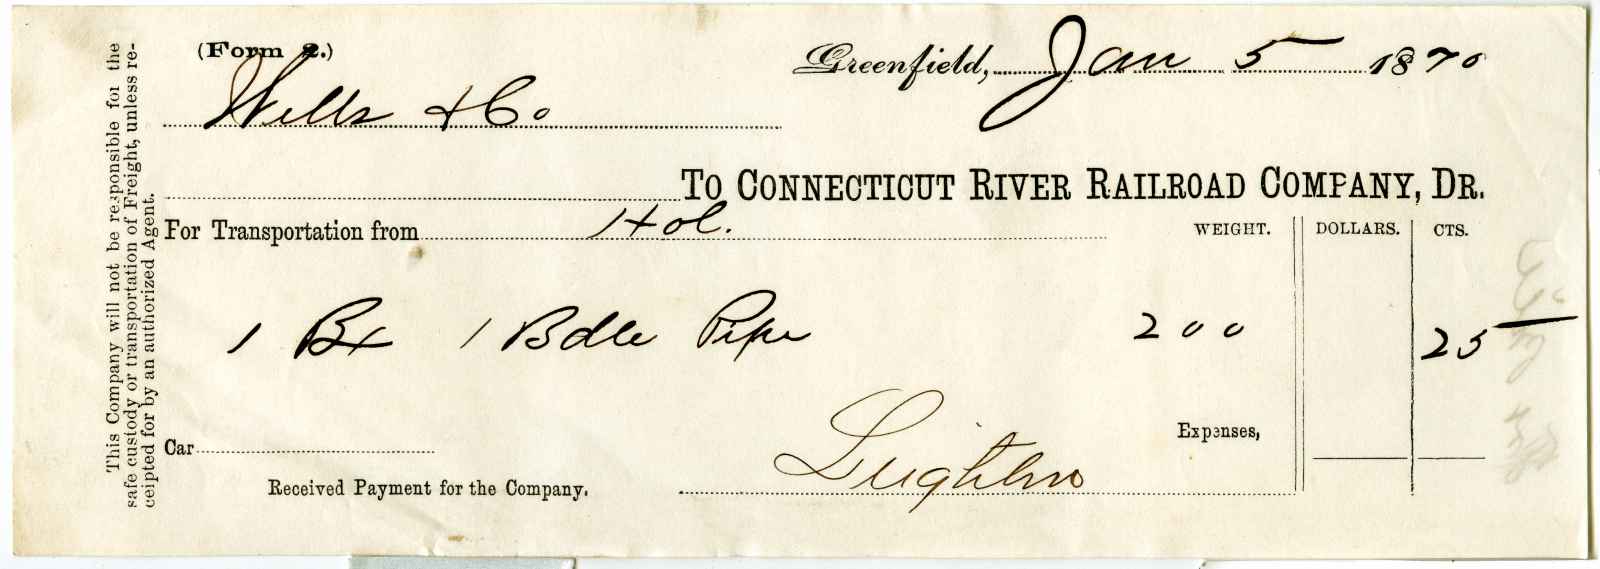 (Form 2.)
Greenfield, Jan 5 1870
Wells & Co
To Connecticut River Railroad Company, Dr.
For Transportation from Hol. WEIGHT. DOLLARS. CTS.
1 Bx 1 Bdle Pipe 200 25
Expenses,
Car
Received Payment for the Company. Leighton
This Company will not be responsible for the
safe custody or transportation of Freight, unless re-
ceipted for by an authorized Agent.